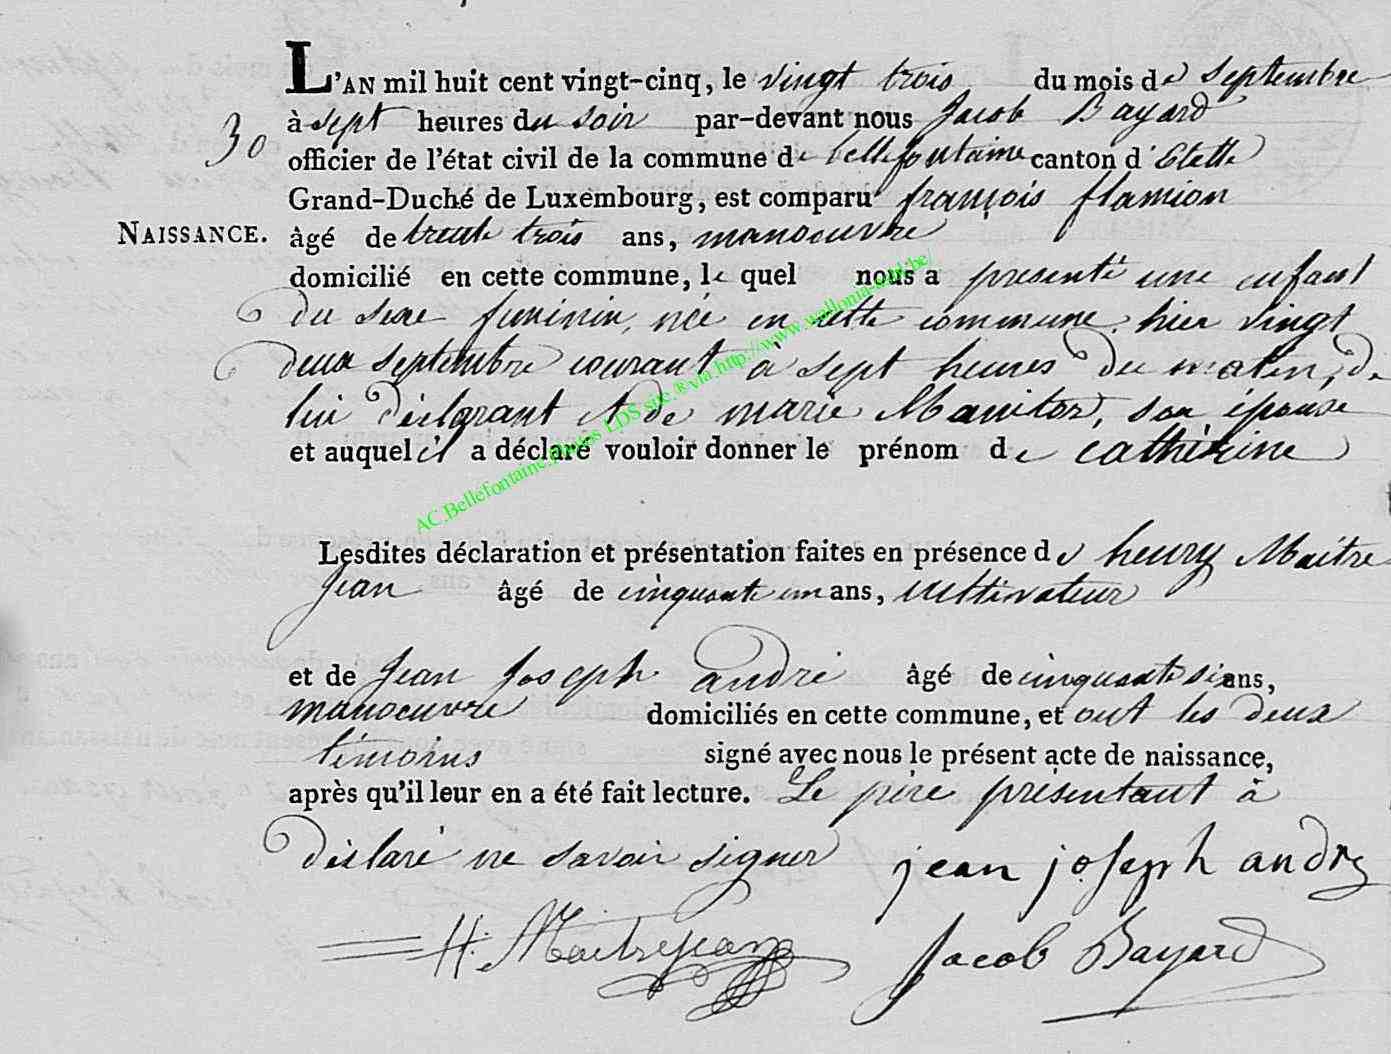 L'AN mil huit cent vingt-cinq, le vingt trois du mois de Septembre
30
à sept heures du soir par-devant nous Jacob Bayard
officier de l'état civil de la commune de bellefontaine canton d'Etalle
Grand-Duché de Luxembourg, est comparu françois flamion
NAISSANCE.
âgé de trente trois ans, manoeuvre
domicilié en cette commune, le quel nous a presenté une enfant
du sexe feminin, née en cette commune, hier vingt
deux septembre courant à sept heures du matin, de
lui déclarant et de marie Manitor, son épouse
et auquel il a déclaré vouloir donner le prénom de cathérine
AC.Bellefontaine. LDS via http://www.wallonia.be/
Lesdites déclaration et présentation faites en présence de henry Maitre
Jean âgé de cinquante un ans, cultivateur
et de Jean Joseph andré âgé de cinquante six ans,
manoeuvre domiciliés en cette commune, et ont les deux
témoins signé avec nous le présent acte de naissance,
après qu'il leur en a été fait lecture. Le père présentant à
déclaré ne savoir signer
jean joseph andre
H. Maitrejean
Jacob Bayard